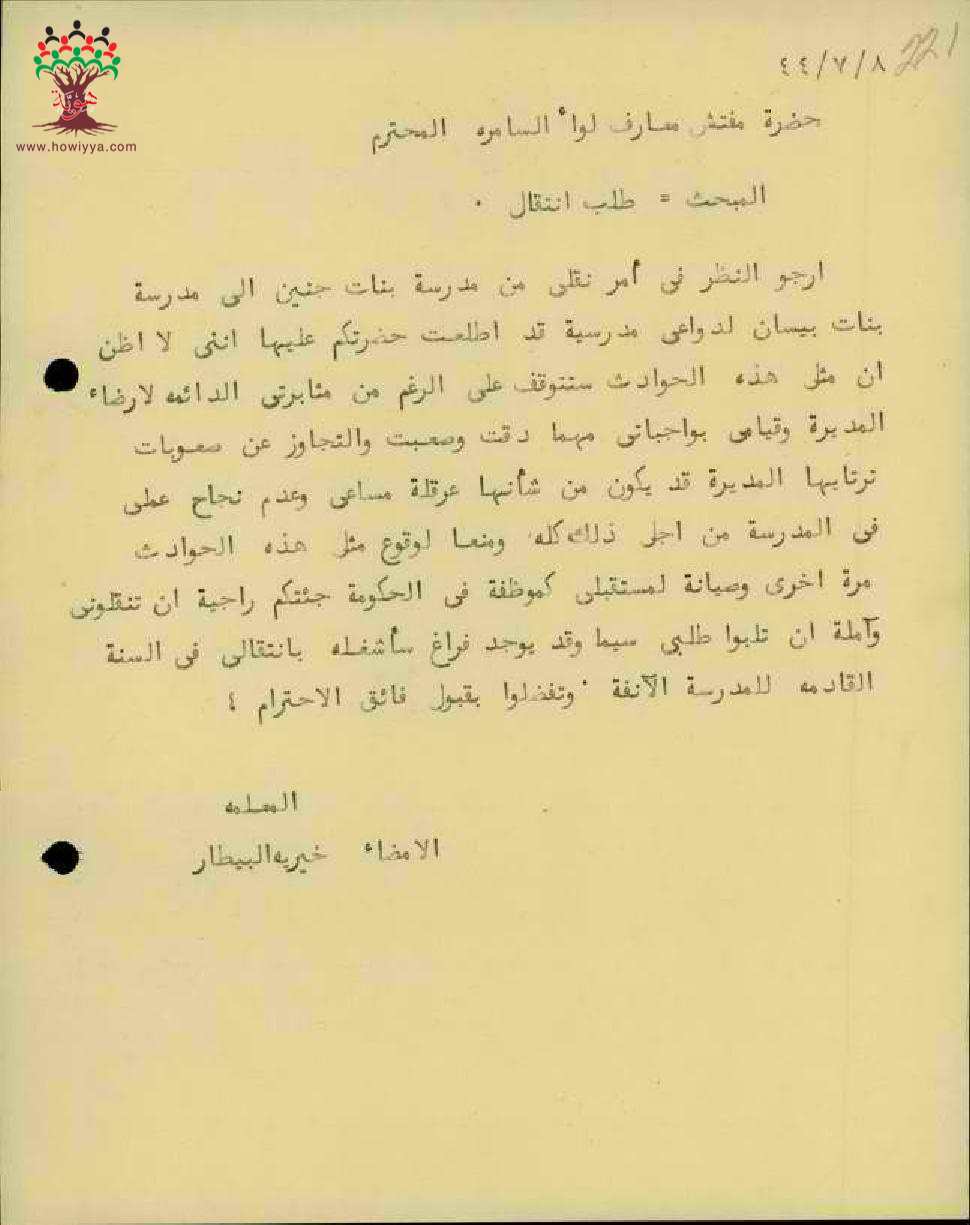 221
٤٤/٧/٨
هويّة
www.howiyya.com
حضرة مفتش معارف لوأ السامره المحترم
المبحث = طلب انتقال ·
ارجو النظر فى أمر نقلى من مدرسة بنات جنين الى مدرسة
بنات بيسان لدواعى مدرسية قد اطلعت حضرتكم عليها اننى لا اظن
ان مثل هذه الحوادث ستتوقف على الرغم من مثابرتى الدائمه لارضاء
المديرة وقيامى بواجباتى مهما دقت وصعبت والتجاوز عن صعوبات
ترتأيها المديرة قد يكون من شأنها عرقلة مساعى وعدم نجاح عملى
فى المدرسة من اجل ذلك كله ومنعا لوقوع مثل هذه الحوادث
مرة اخرى وصيانة لمستقبلى كموظفة فى الحكومة جئتكم راجية ان تنقلونى
وآملة ان تلبوا طلبى سيما وقد يوجد فراغ سأشغله بانتقالى فى السنة
القادمه للمدرسة الآنفة · وتفضلوا بقبول فائق الاحترام ؛
المعلمه
الامضاء خيريه البيطار